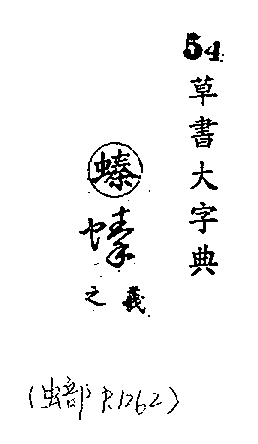 54
草書大字典
螓
螓
羲之
(虫部 P.1262)